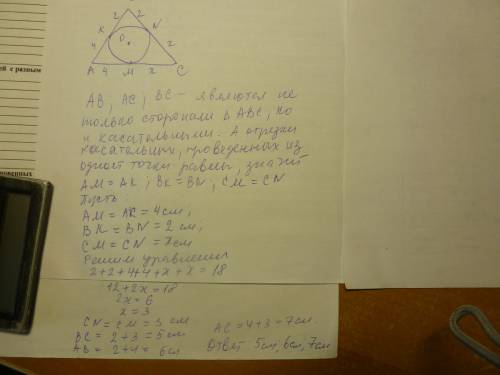 2 2
K N
O
4 x
A 4 M x C
AB, AC, BC – являются не
только сторонами Δ ABC, но
и касательными. А отрезки
касательных, проведенных из
одной точки равны, значит
AM = AK; BK = BN; CM = CN
Пусть
AM = AK = 4 см,
BK = BN = 2 см,
CM = CN = x см
Решим уравнения
2+2+4+4+x+x = 18
12+2x = 18
2x = 6
x = 3
CN = CM = 3 см
BC = 2+3 = 5 см
AB = 2+4 = 6 см
AC = 4+3 = 7 см
Ответ 5 см, 6 см, 7 см
й с разным